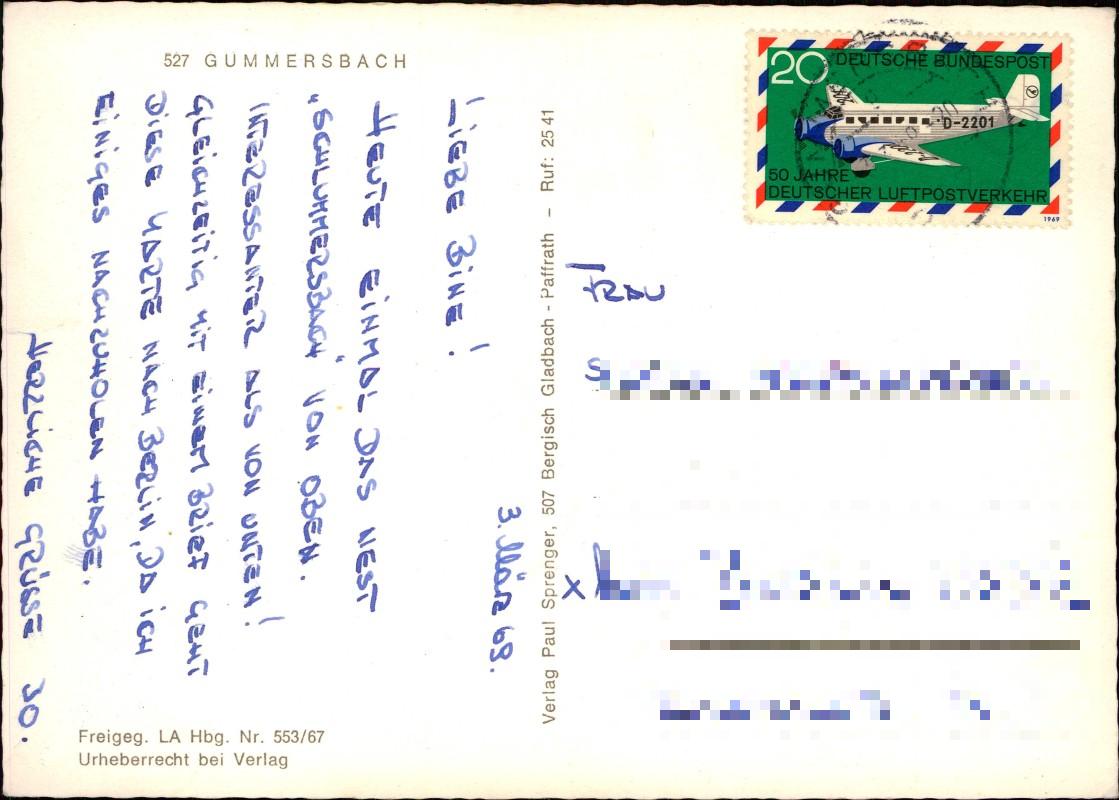 527 GUMMERSBACH
20 DEUTSCHE BUNDESPOST
D-2201
50 JAHRE
DEUTSCHER LUFTPOSTVERKEHR
1969
3. März 69.
LIEBE BINE!
HEUTE EINMAL DAS NEST
"SCHLUMMERSBACH" VON OBEN.
INTERESSANTER ALS VON UNTEN!
GLEICHZEITIG MIT EINEM BRIEF GEHT
DIESE KARTE NACH BERLIN, DA ICH
EINIGES NACHZUHOLEN HABE.
HERZLICHE GRÜSSE
Verlag Paul Sprenger, 507 Bergisch Gladbach - Paffrath – Ruf: 25 41
FRAU
Freigeg. LA Hbg. Nr. 553/67
Urheberrecht bei Verlag